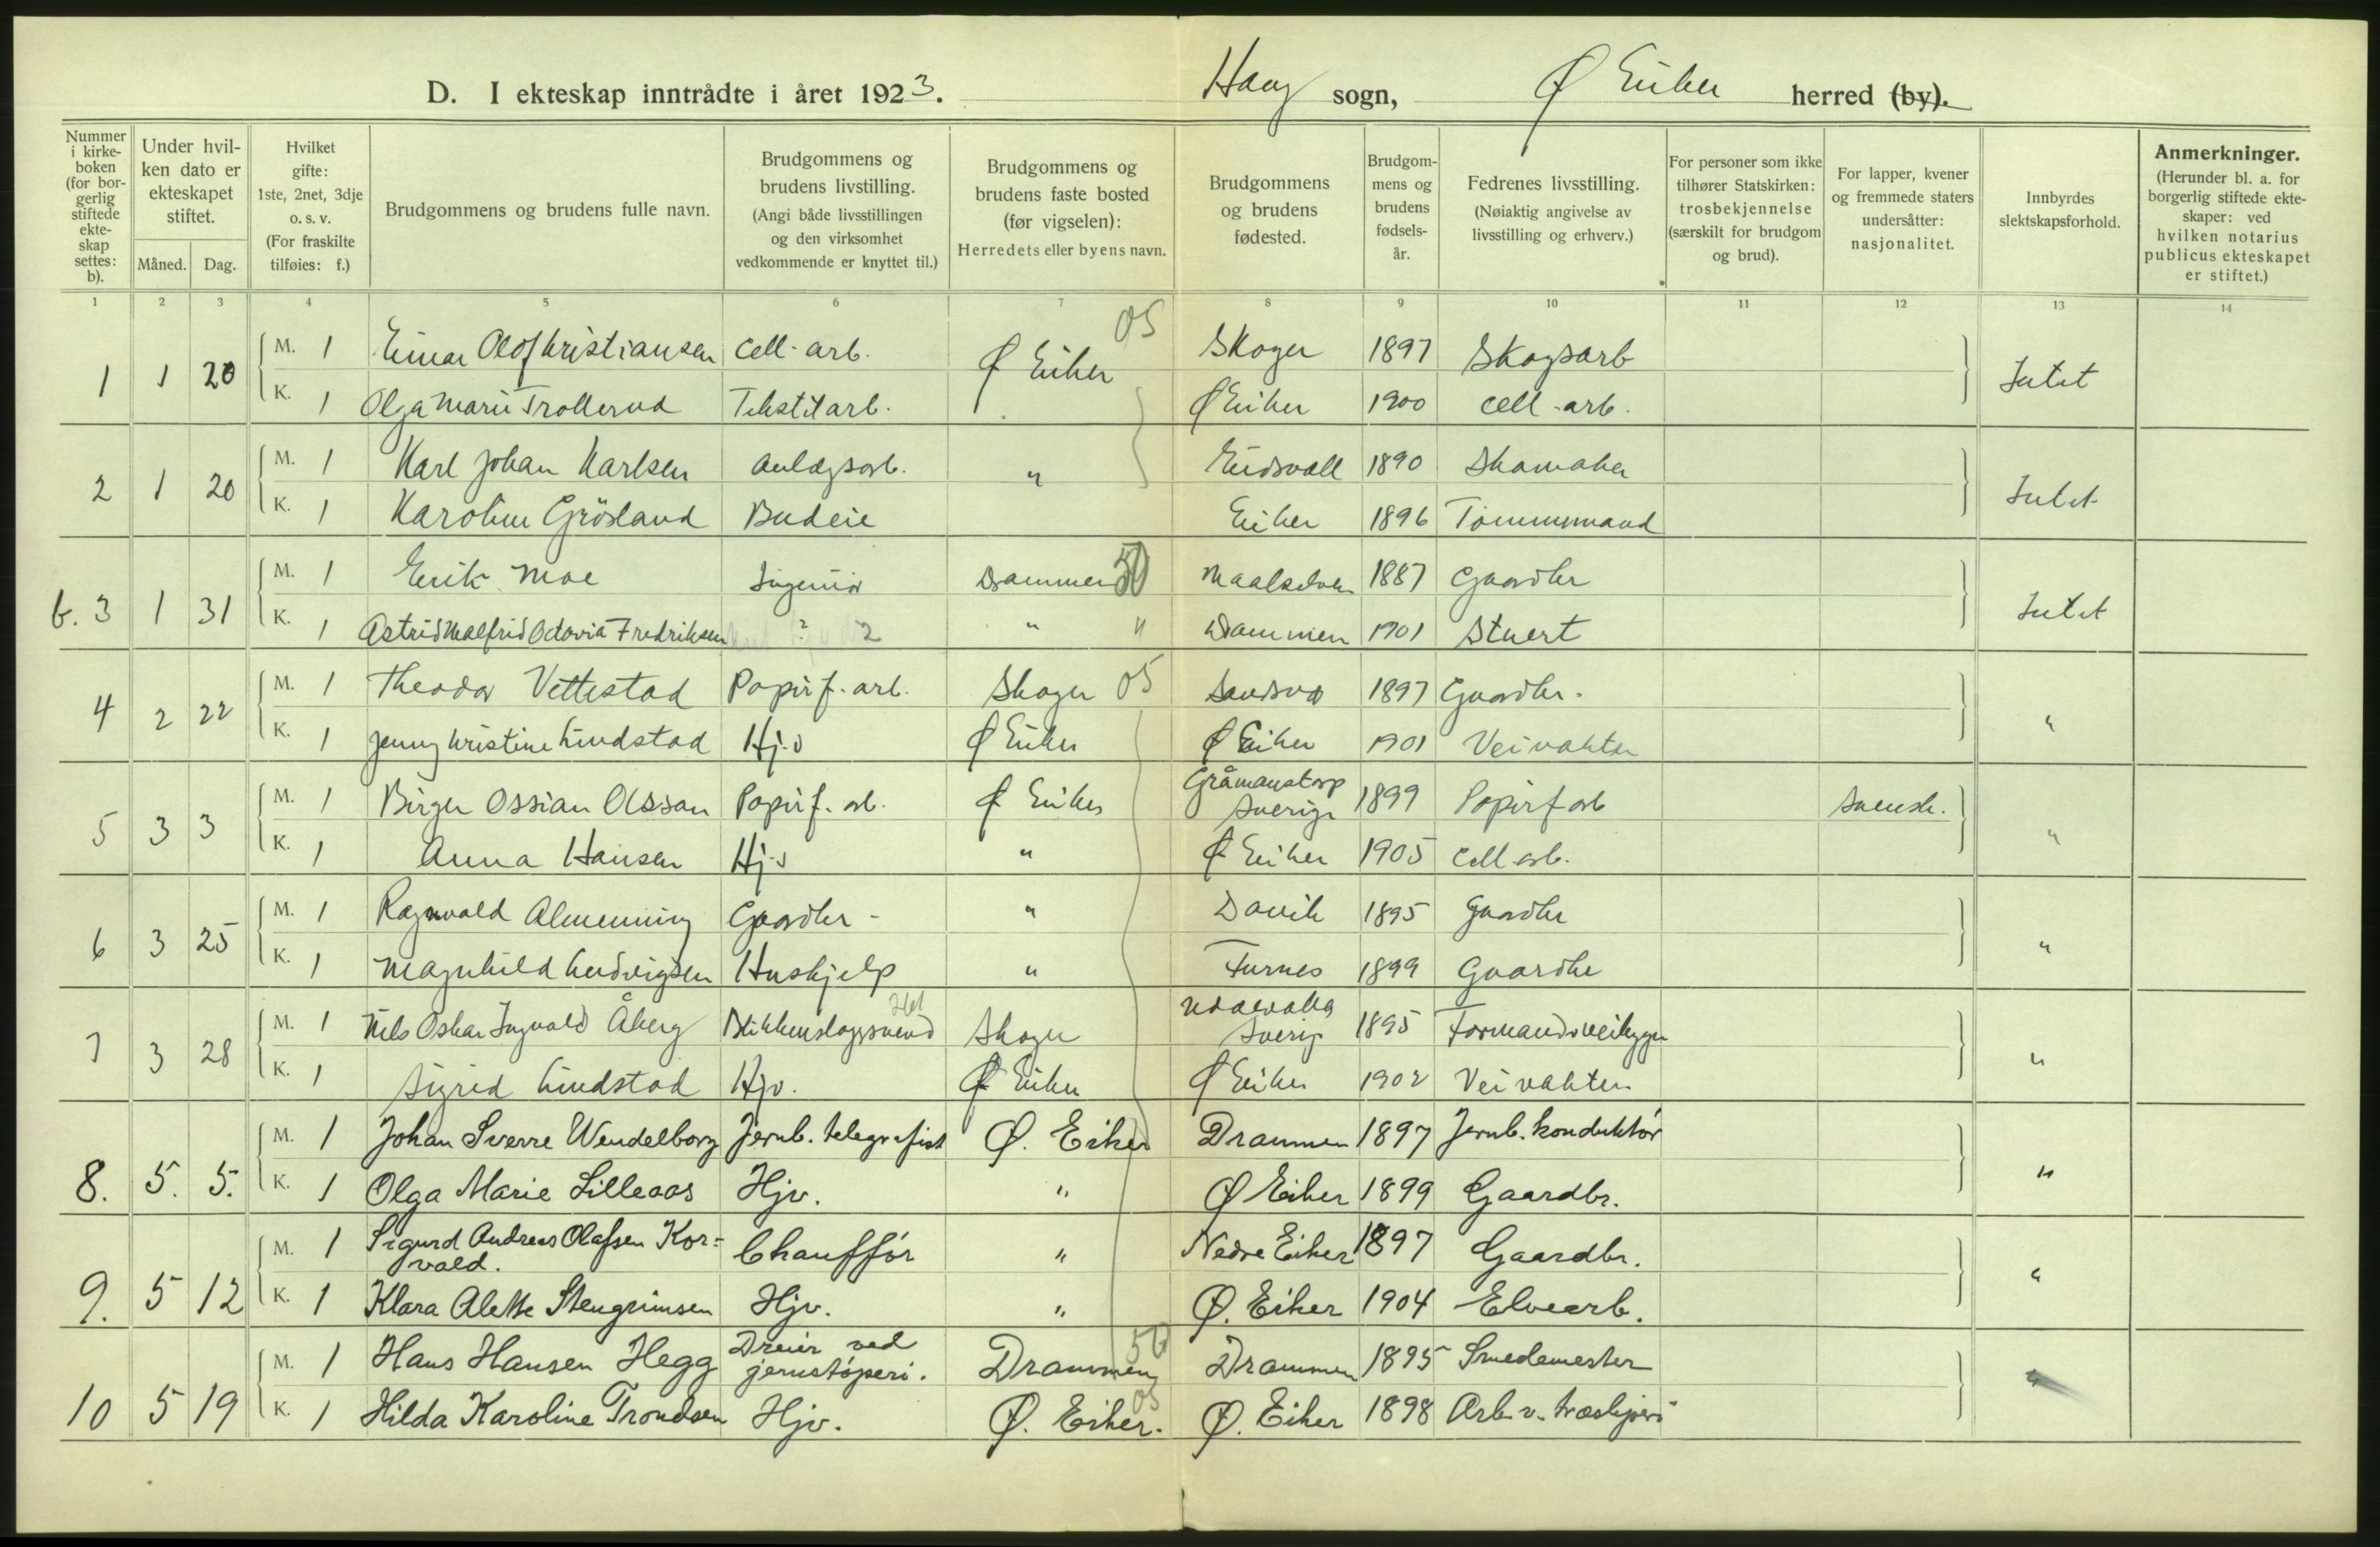 D. I ekteskap inntrådte i året 1923. Haug sogn, Ø Eiker herred (by).
Nummer i kirkeboken (for borgerlig stiftede ekteskap settes: b).
Under hvilken dato er ekteskapet stiftet.
Måned. Dag.
Hvilket gifte: 1ste, 2net, 3dje o. s. v. (For fraskilte tilføies: f.)
Brudgommens og brudens fulle navn.
Brudgommens og brudens livstilling. (Angi både livsstillingen og den virksomhet vedkommende er knyttet til.)
Brudgommens og brudens faste bosted (før vigselen): Herredets eller byens navn.
Brudgommens og brudens fødested.
Brudgommens og brudens fødselsår.
Fedrenes livsstilling. (Nøiaktig angivelse av livsstilling og erhverv.)
For personer som ikke tilhører Statskirken: trosbekjennelse (særskilt for brudgom og brud).
For lapper, kvener og fremmede staters undersåtter: nasjonalitet.
Innbyrdes slektskapsforhold.
Anmerkninger. (Herunder bl. a. for borgerlig stiftede ekteskaper: ved hvilken notarius publicus ekteskapet er stiftet.)
1 2 3 4 5 6 7 8 9 10 11 12 13 14
05
1 1 20 M. 1 Einar Olof Kristiansen Cell-arb. Ø Eiker Skoger 1897 Skogsarb Intet
K. 1 Olga Marie Trollerud Tekstilarb. Ø Eiker 1900 Cell-arb.
2 1 20 M. 1 Karl Johan Karlsen Anlægsarb. " Eidsvoll 1890 Skomaker Intet
K. 1 Karoline Grösland Budeie Eiker 1896 Tömmermand
b. 3 1 31 M. 1 Erik Moe Ingeniør Drammen 50 Maalselven 1887 Gaardbr Intet
K. 1 Astrid Malfrid Octavia Fredriksen ? 2 " " Drammen 1901 Stuert
4 2 22 M. 1 Theodor Vettestad Papirf.arb. Skoger 05 1897 Gaardbr. "
K. 1 Jenny Kristine Lindstad Hj.v Ø Eiker Ø Eiker 1901 Veivokter
5 3 3 M. 1 Birger Ossian Olsson Papirf.arb. Ø Eiker Gråmanstorp Sverige 1899 Papirfarb svensk. "
K. 1 Anna Hansen Hj.v " Ø Eiker 1905 Cell.arb.
6 3 25 M. 1 Ragnvald Almenning Gaardbr - " Davik 1895 Gaardbr "
K. 1 Magnhild Ludvigsen Hushjelp " Furnes 1899 Gaardbr
7 3 28 M. 1 Nils Oskar Ingvald Åberg Blikkenslagersvend Skoger Uddevalla Sverig 1895 Formand v veibygn "
K. 1 Sigrid Lindstad Hjv. Ø Eiker Ø Eiker 1902 Veivokter
8. 5. 5. M. 1 Johan Sverre Wendelborg Jernb. telegrafist Ø. Eiker Drammen 1897 Jernb. konduktör "
K. 1 Olga Marie Lilleaas Hjv. " Ø Eiker 1899 Gaardbr.
9. 5 12 M. 1 Sigurd Andreas Olafsen Korvald. Chaufför " Nedre Eiker 1897 Gaardbr. "
K. 1 Klara Alette Stengrimsen Hjv. " Ø. Eiker 1904 Elvearb.
10 5 19 M. 1 Hans Hansen Hegg Dreier ved jernstöperi. Drammen 50 Drammen 1895 Smedemester "
K. 1 Hilda Karoline Trondsen Hjv. Ø. Eiker. 05 Ø. Eiker 1898 Arb. v. træsliperi